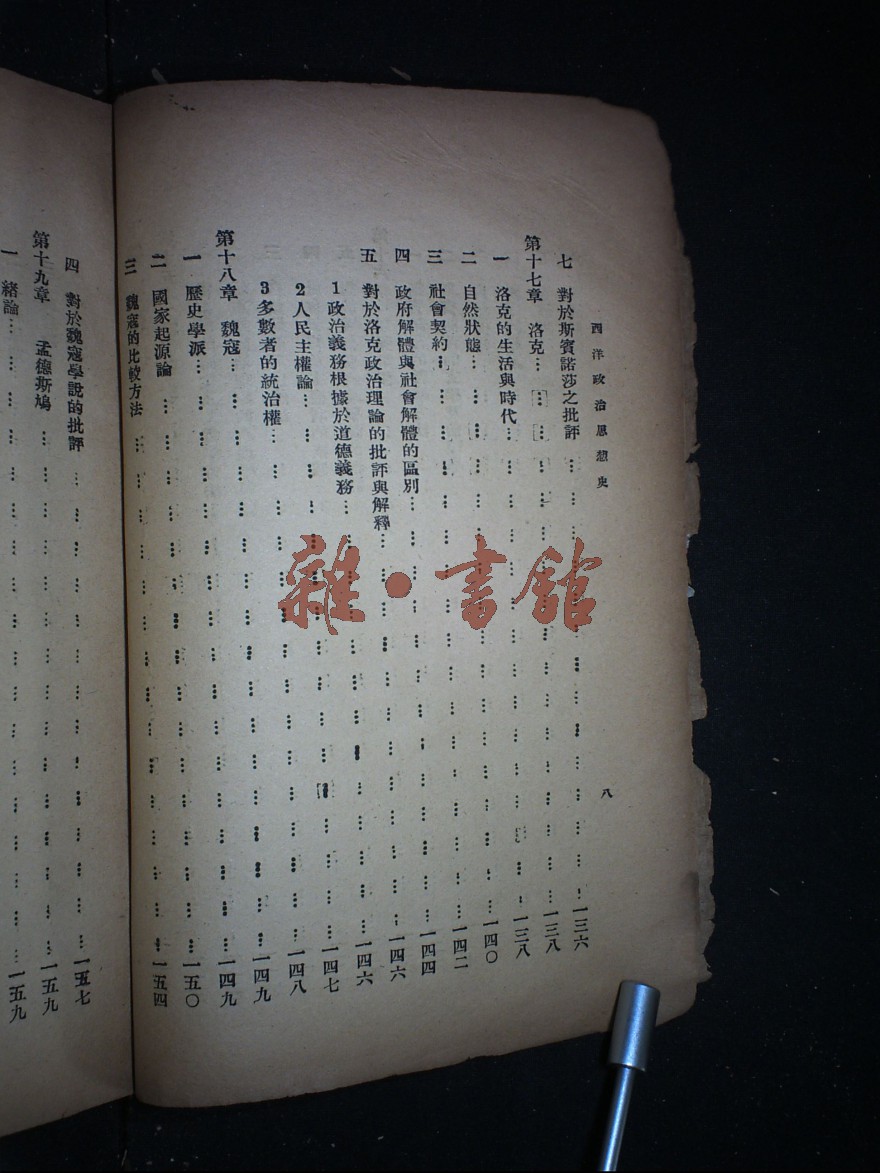 西洋政治思想史
八
七 對於斯賓諾莎之批評……一三六
第十七章 洛克……一三八
一 洛克的生活與時代……一三八
二 自然狀態……一四〇
三 社會契約……一四二
四 政府解體與社會解體的區別……一四四
五 對於洛克政治理論的批評與解釋……一四六
1 政治義務根據於道德義務……一四六
2 人民主權論……一四七
3 多數者的統治權……一四八
第十八章 魏寇……一四九
一 歷史學派……一四九
二 國家起源論……一五〇
三 魏寇的比較方法……一五四
四 對於魏寇學說的批評……一五七
第十九章 孟德斯鳩……一五九
一 緒論……一五九
雜·書館